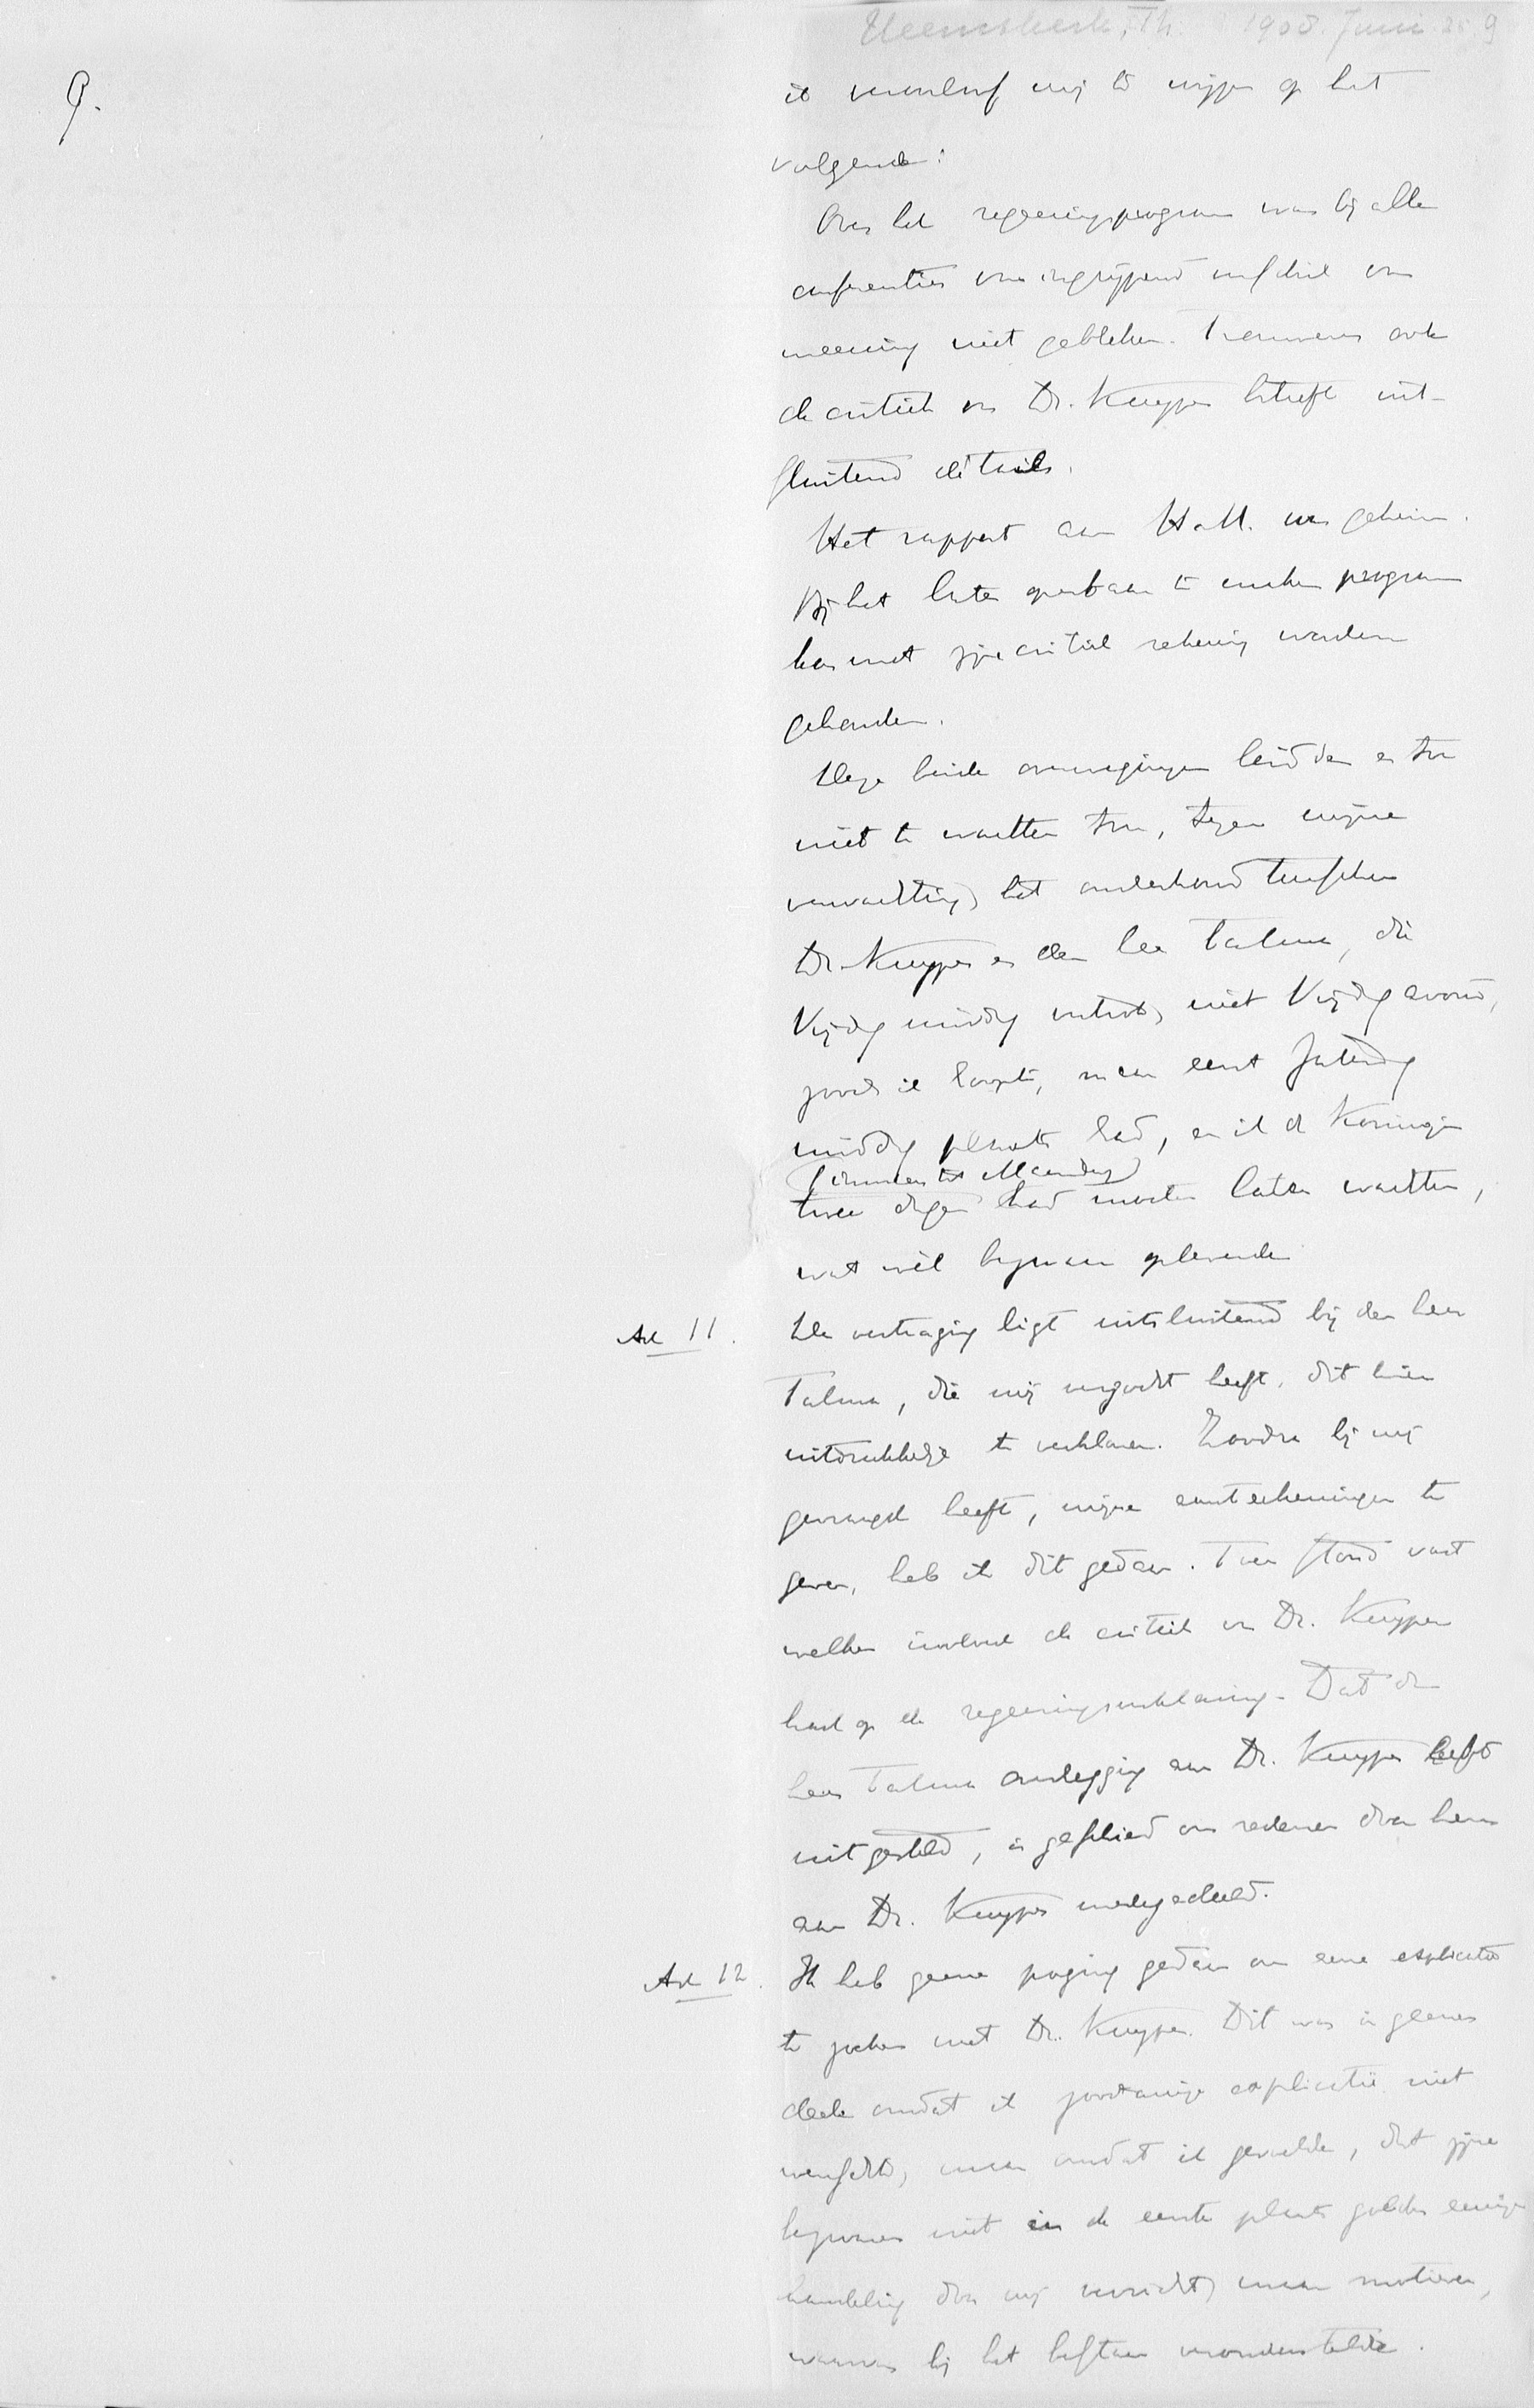 Heemskerk, Th. 1908. Juni 25 9
9.
ik veroorloof mij te wijzen op het
volgende:
Over het regeeringsprogram was bij alle
conferenties van ingrijpend verschil van
meening niet gebleken. Trouwens ook
de critiek van Dr. Kuyper betreft uit-
sluitend détails.
Het rapport aan H.M. was geheim.
Bij het later openbaar te maken program
kon met zijne critiek rekening worden
gehouden.
Deze beide overwegingen leidden er toe
niet te wachten toen, tegen mijne
verwachting, het onderhoud tusschen
Dr. Kuyper en den heer Talma, die
Vrijdag middag vertrok, niet Vrijdag avond,
zooals ik hoopte, maar eerst Zaterdag
middag plaats had, en ik de Koningin
(immers tot Maandag)
twee dagen had moeten laten wachten,
wat wèl bezwaar opleverde
Ad 11.
De vertraging ligt uitsluitend bij den heer
Talma, die mij verzocht heeft, dit hier
uitdrukkelijk te verklaren. Zoodra hij mij
gevraagd heeft, mijne aanteekeningen te
geven, heb ik dit gedaan. Toen stond vast
welken invloed de critiek van Dr. Kuyper
had op de regeeringsverklaring. Dat de
heer Talma overlegging aan Dr. Kuyper heeft
uitgesteld, is geschied om redenen door hem
aan Dr. Kuyper medegedeeld.
Ad 12.
Ik heb geene poging gedaan om eene explicatie
te zoeken met Dr. Kuyper. Dit was in geenen
deele omdat ik zoodanige explicatie niet
wenschte, maar omdat ik gevoelde, dat zijne
bezwaren niet in de eerste plaats golden eenige
handeling door mij verricht, maar motieven,
waarvan hij het bestaan veronderstelde.